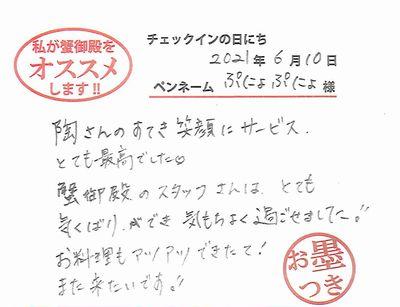 私が蟹御殿を
オススメ
します!!
チェックインの日にち
2021年6月10日
ペンネーム ぷにょぷにょ 様
陶さんのすてき笑顔にサービス.
とても最高でした♡
蟹御殿のスタッフさんは、とても
気くばりができ 気もちよく過ごせましたー!!
お料理もアツアツできたて!
また来たいです!!
お墨
つき